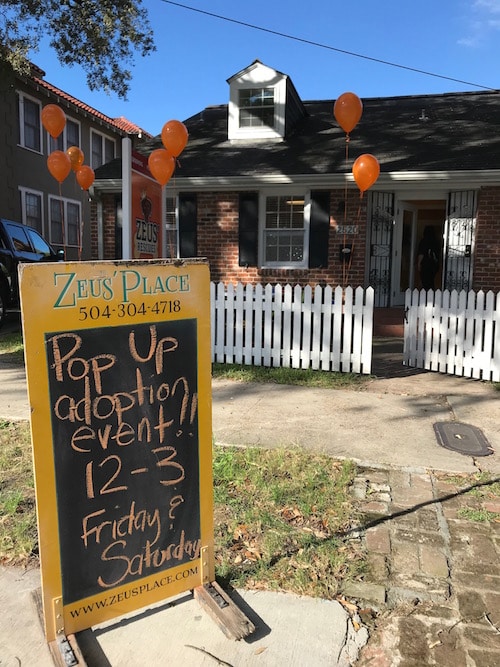 Zeus' Place
504-304-4718
Pop Up
adoption
event!!
12-3
Friday &
Saturday
www.zeusplace.com
ZEUS
2520